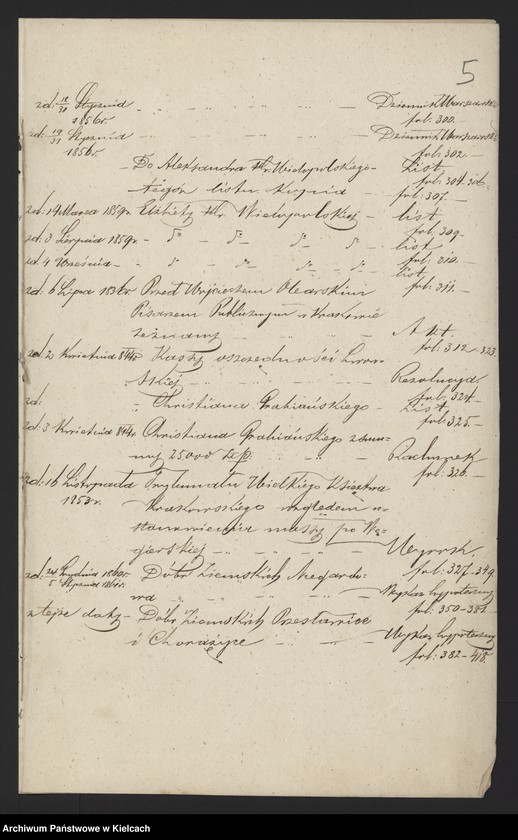 5
zd: 19/31 Stycznia 1856r. – Dziennik Warszawski fol: 300.
zd: 19/31 Stycznia 1856r. – Dziennik Warszawski fol: 302.
Do Aleksandra Hr. Wielopolskiego – List
tegoż listu kopia – fol: 304. 306. fol: 307.
zd: 14 Marca 1859r. Elżbiety Hr. Wielopolskiej – list fol: 309.
zd: 3 Sierpnia 1859r. – list fol: 310.
zd 4 Września – list fol: 311.
zd: 6 Lipca 1836r Przed Wojciechem Olearskim
Pisarzem Publicznym w Krakowie
zeznany – Akt. fol: 312 – 323.
zd 2 Kwietnia 844r. Kassy oszczędności Lwow-
skiej – Rezolucya. fol: 324.
zd: Christiana Grabiańskiego – List fol: 325.
zd: 3 Kwietnia 844r. Christiana Grabiańskiego z summy 25000 złp. – Rachunek fol: 326.
zd: 16 Listopada 1853r. Trybunału Wielkiego Księstwa
Krakowskiego względem u-
stanowienia massy po Wę-
gierskiej – Wyrok. fol: 327–349.
zd: 24 Grudnia 1860r. 5 Stycznia 1861r. Dóbr Ziemskich
– Wykaz hypoteczny fol: 350–381.
z tejże daty – Dóbr Ziemskich
i Chorążyce – Wykaz hypoteczny fol: 382–418.
Archiwum Państwowe w Kielcach